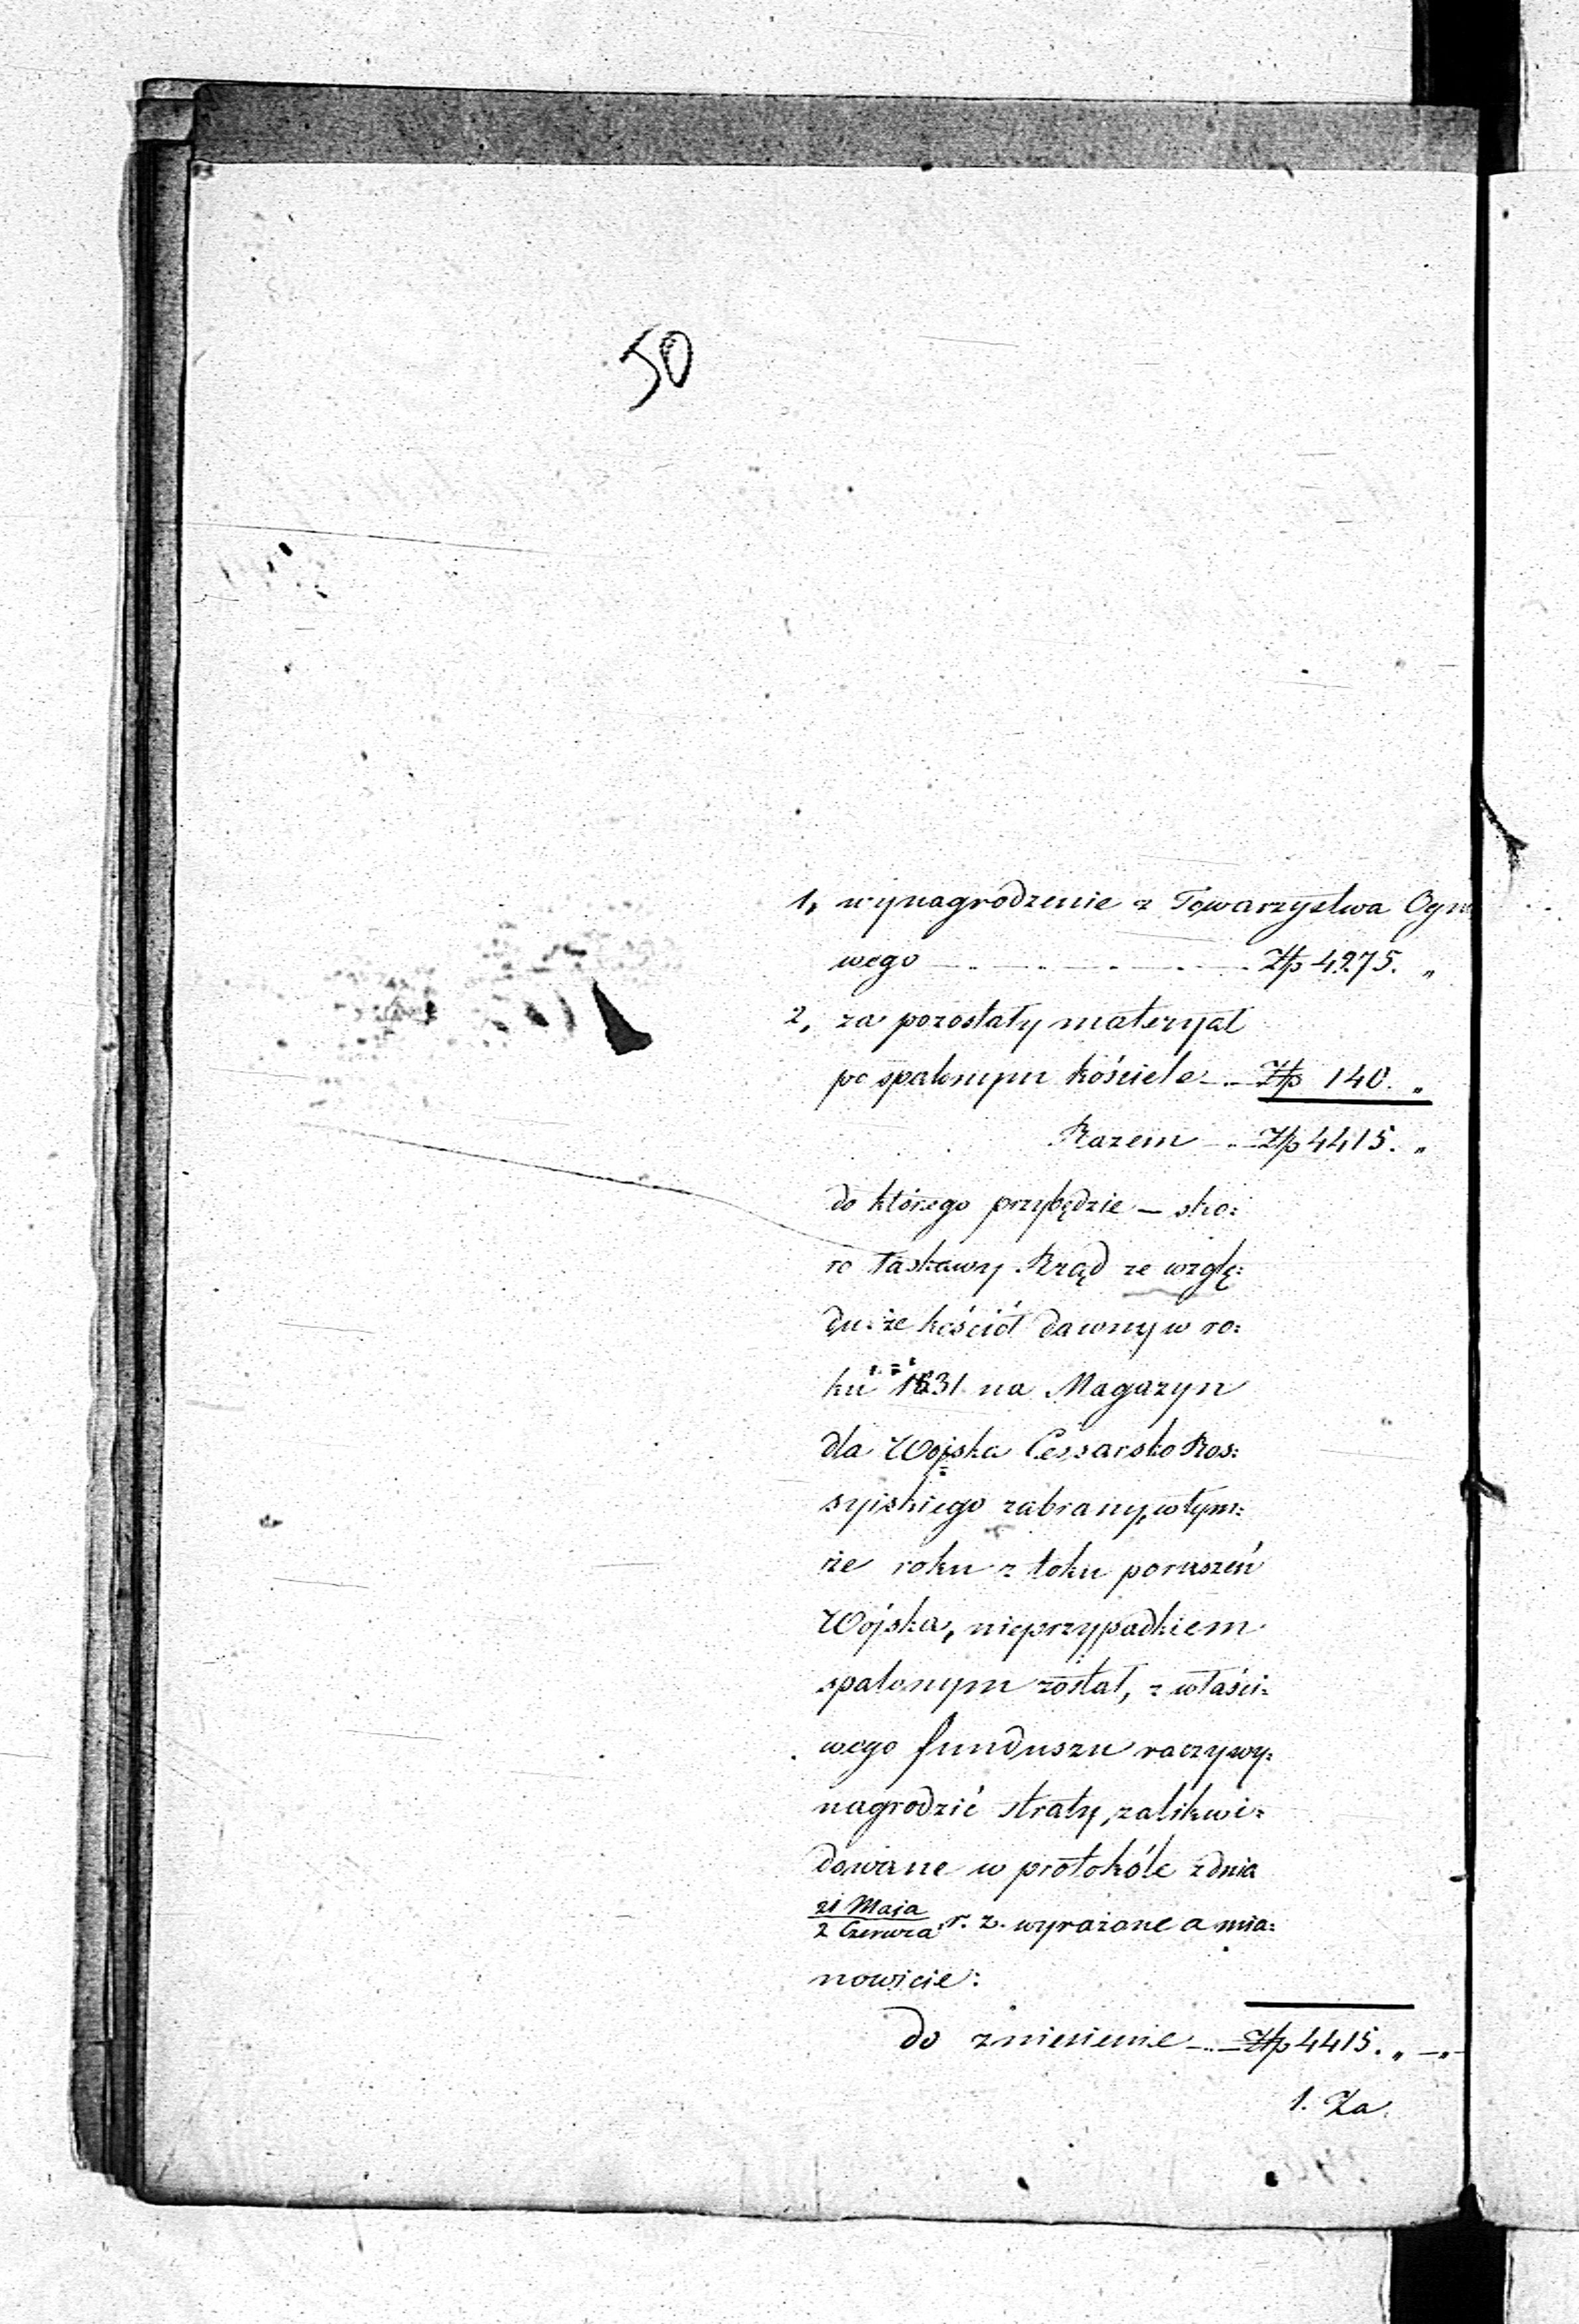 50
1, wynagrodzenie z Towarzystwa Ogn
wego Złp 4275. „
2, za pozostały materyał
po spalonym kościele Złp 140. „
Razem Złp 4415. „
do którego przybędzie – sko:
ro łaskawy Rząd ze wzglę:
du: że kościół dawny w ro:
ku 1831 na Magazyn
dla Wojska Cessarsko Ros:
syiskiego zabrany, w tym:
że roku z toku poruszeń
Wojska, nieprzypadkiem
spalonym został, z właści:
wego funduszu raczy wy:
nagrodzić straty, zalikwi:
dowane w protokóle z dnia
21 Maja
2 Czerwca r. z. wyrażone a mia:
nowicie:
do zniesienie Złp 4415. „ – „ –
1. Za